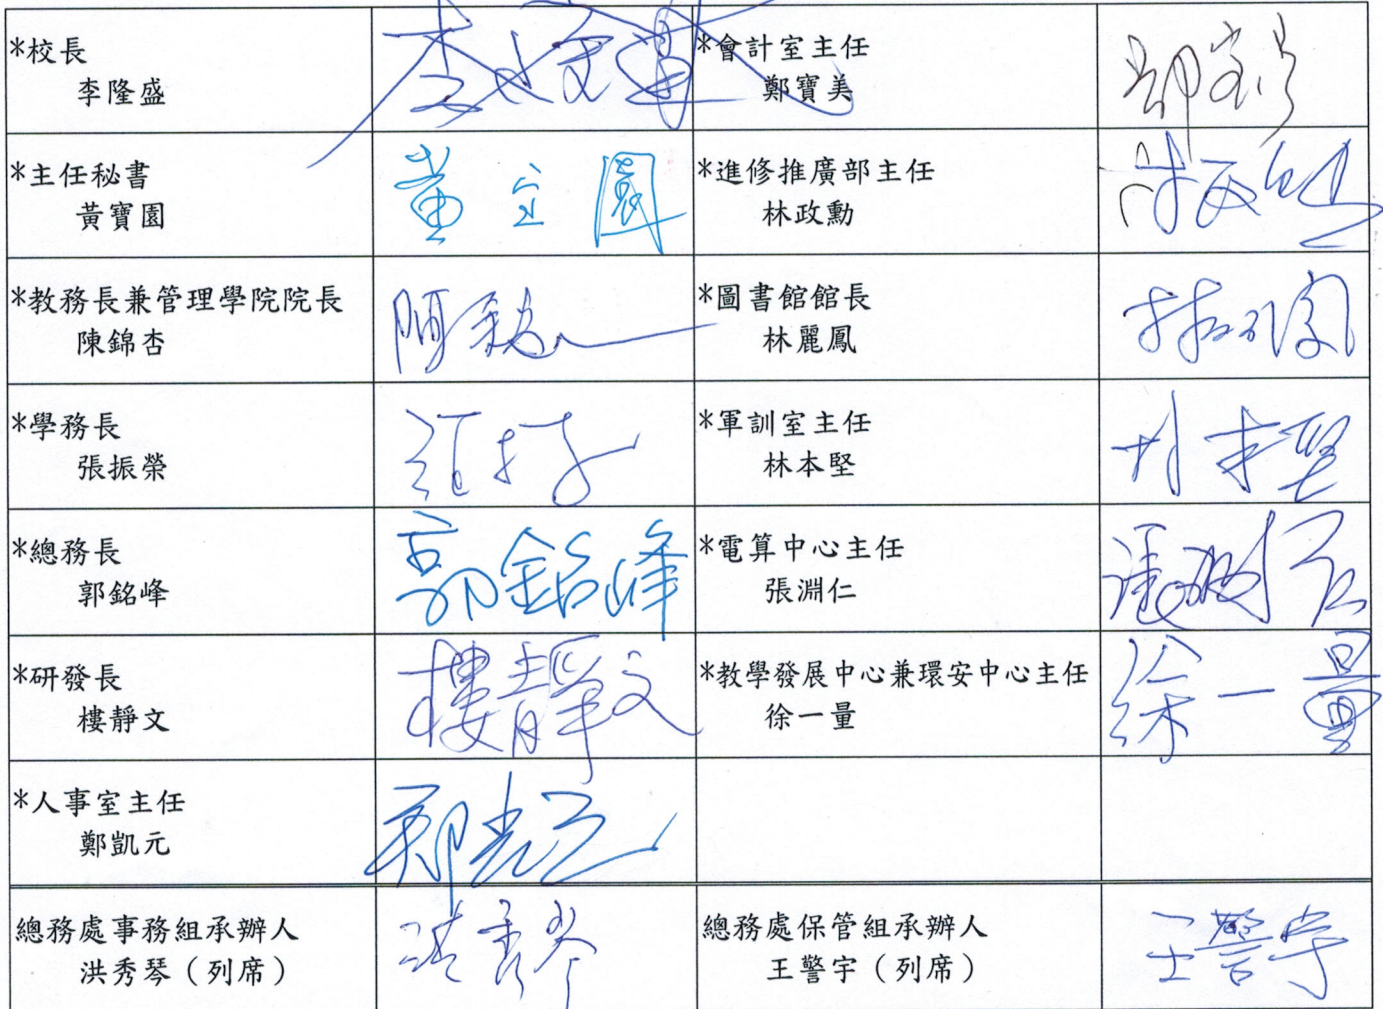 *校長
李隆盛
*會計室主任
鄭寶美
*主任秘書
黃寶園
黃宝園
*進修推廣部主任
林政勳
*教務長兼管理學院院長
陳錦杏
*圖書館館長
林麗鳳
*學務長
張振榮
*軍訓室主任
林本堅
林本堅
*總務長
郭銘峰
郭銘峰
*電算中心主任
張淵仁
*研發長
樓靜文
樓靜文
*教學發展中心兼環安中心主任
徐一量
徐一量
*人事室主任
鄭凱元
總務處事務組承辦人
洪秀琴（列席）
洪秀琴
總務處保管組承辦人
王警宇（列席）
王警宇